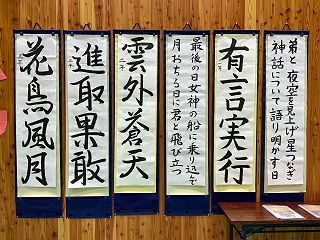 弟と夜空を見上げ星つなぎ
神話について語り明かす日
有言実行
最後の日女神の船に乗り込んで
月おちる日に君と飛び立つ
雲外蒼天
進取果敢
花鳥風月